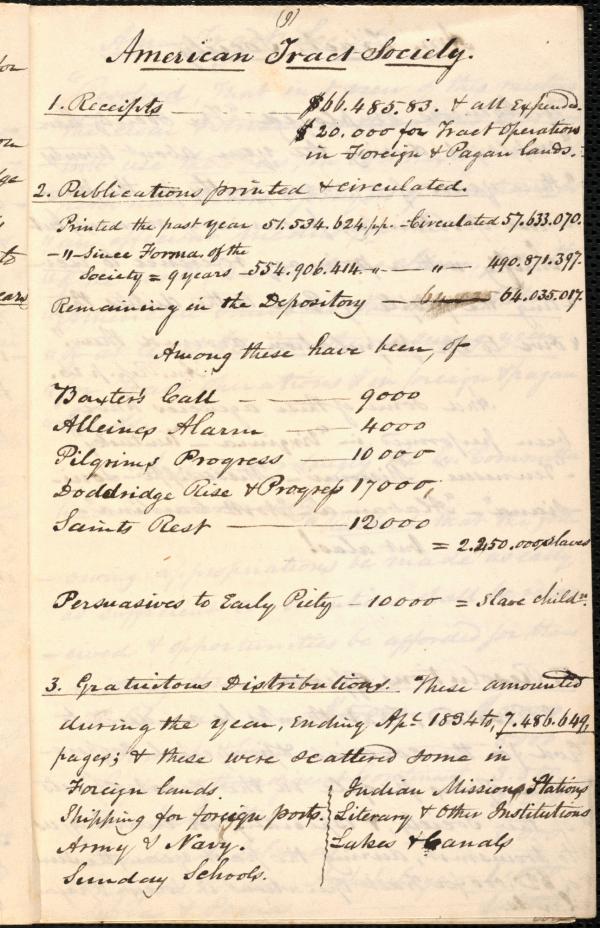 (9)
American Tract Society.
1. Receipts — $66.485.83. & all Expended.
$20.000 for Tract Operations
in Foreign & Pagan lands.
2. Publications printed & circulated.
Printed the past year 51.534.624 pp. - Circulated 57.633.070.
— " — Since Forma. of the
Society = 9 years - 554.906.414. " — " — 490.871.397.
Remaining in the Depository — 64.035 64.035.017.
Among these have been, of
Baxter's Call — 9000
Alleines Alarm — 4000
Pilgrims Progress — 10000
Doddridge Rise & Progress 17000,
Saints Rest — 12000
= 2.250.000 slaves
Persuasives to Early Piety - 10000 = Slave childn.
3. Gratuitous Distributions. These amounted
during the year, Ending Apl. 1834 to, 7.486.649,
pages; & these were scattered some in
Foreign lands.
Shipping for foreign ports.
Army & Navy.
Sunday Schools.
Indian Mission Stations
Literary & Other Institutions
Lakes & Canals